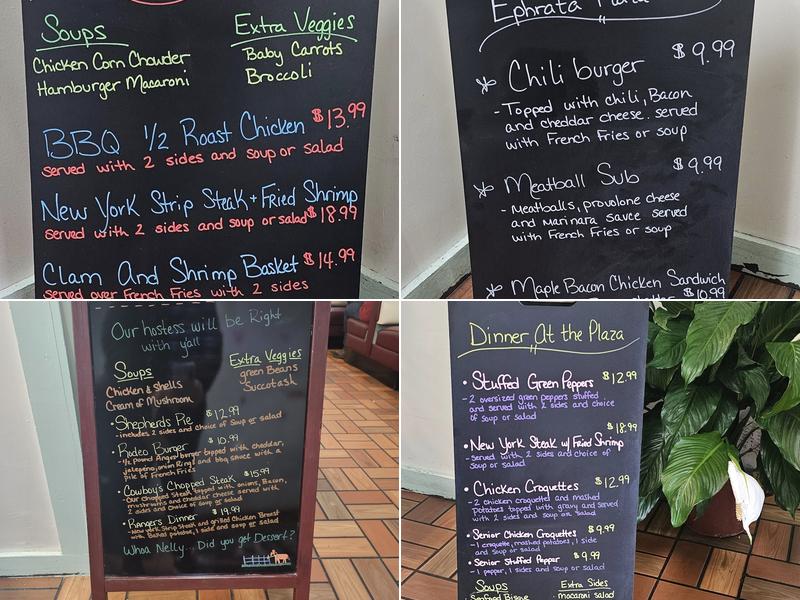 Soups
Extra Veggies
Chicken Corn Chowder
Hamburger Macaroni
Baby Carrots
Broccoli
BBQ 1/2 Roast Chicken $13.99
served with 2 sides and soup or salad
New York Strip Steak + Fried Shrimp
served with 2 sides and soup or salad $18.99
Clam And Shrimp Basket $14.99
served over French Fries with 2 sides
Ephrata
$9.99
Chili burger
- Topped with chili, Bacon
and cheddar cheese. served
with French Fries or soup
$9.99
Meatball Sub
- Meatballs, provolone cheese
and marinara sauce served
with French Fries or soup
Maple Bacon Chicken Sandwich
$10.99
Our hostess will be Right
with y'all
Soups
Extra Veggies
Chicken & Shells
Cream of Mushroom
green Beans
Succotash
• Shepherds Pie $12.99
- includes 2 sides and choice of Soup or salad
• Rodeo Burger $10.99
- 1/2 pound Angus burger topped with cheddar,
jalapeno, onion Rings and bbq sauce with a
pile of French Fries
• Cowboy's Chopped Steak $15.99
- Our Chopped Steak topped with onions, Bacon,
mushrooms and cheddar cheese served with
2 sides and choice of soup or salad
• Rangers Dinner $19.99
- New York Strip Steak and grilled Chicken Breast
with Baked potato, 1 side and soup or salad
Whoa Nelly... Did you get Dessert?
Dinner At the Plaza
• Stuffed Green Peppers $12.99
- 2 oversized green peppers stuffed
and served with 2 sides and choice
of soup or salad
$18.99
• New York Steak w/ Fried Shrimp
- Served with 2 sides and choice of
soup or salad
• Chicken Croquettes $12.99
- 2 chicken croquettes and mashed
potatoes topped with gravy and served
with 2 sides and soup or salad
• Senior Chicken Croquettes $9.99
- 1 croquette, mashed potatoes, 1 side
and soup or salad
• Senior Stuffed Pepper $9.99
- 1 pepper, 1 sides and soup or salad
Soups
Extra Sides
Seafood Bisque
macaroni salad